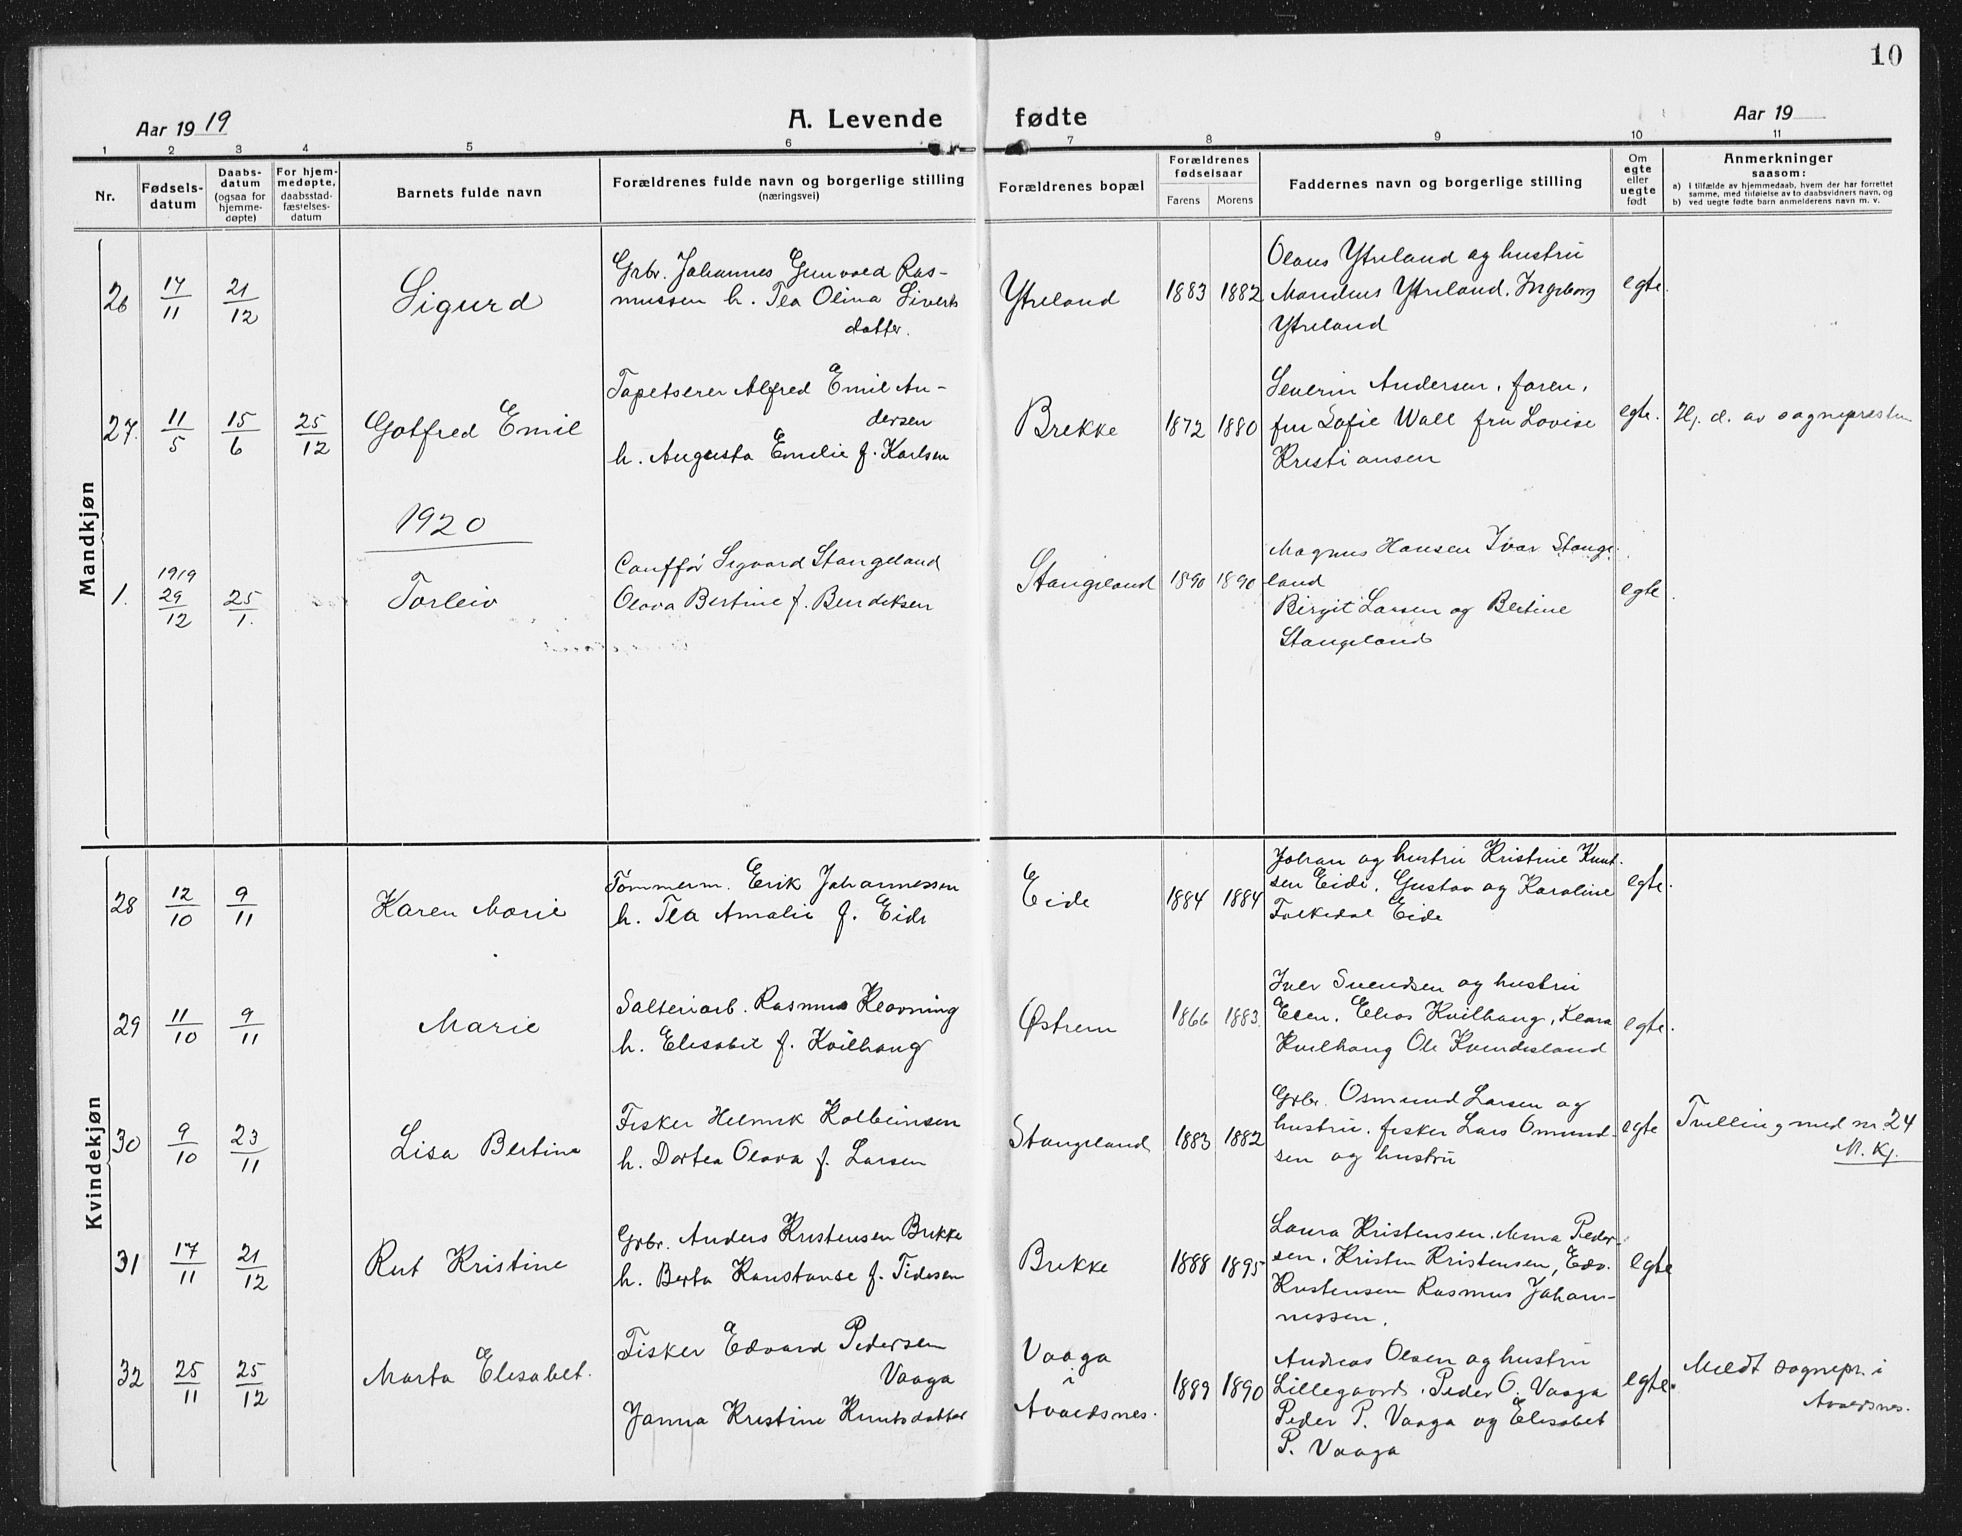 10
Aar 1919
A. Levende fødte
Aar 19
1 2 3 4 5 6 7 8 9 10 11
Nr.
Fødsels-
datum
Daabs-
datum
(ogsaa for
hjemme-
døpte)
For hjem-
medøpte,
daabsstad-
fæstelses-
datum
Barnets fulde navn
Forældrenes fulde navn og borgerlige stilling
(næringsvei)
Forældrenes bopæl
Forældrenes
fødselsaar
Farens Morens
Faddernes navn og borgerlige stilling
Om
egte
eller
uegte
født
Anmerkninger
saasom:
a) i tilfælde av hjemmedaab, hvem der har forrettet
samme, med tilføielse av to daabsvidners navn, og
b) ved uegte fødte barn anmelderens navn m. v.
Mandkjøn
26
17/11
21/12
Sigurd
Grbr. Johannes Gunvald Ras-
mussen h. Tea Olina Siverts
datter.
Ytreland
1883 1882
Olaus Ytreland og hustru
Mandius Ytreland, Ingeborg
Ytreland
egte.
27.
11/5
15/6
25/12
Gotfred Emil
Tapetserer Alfred Emil An-
dersen
h. Augusta Emilie f. Karlsen
Brekke
1872 1880
Severin Andersen, faren,
fru Sofie Wall fru Lovise
Kristiansen
egte.
Hj. d. av sognepresten
1920
1.
1919
29/12
25/1.
Torleiv
Cauffør Sigvard Stangeland
Olava Bertine f. Bendiksen
Stangeland
1890 1890
Magnus Hansen Ivar Stange-
land
Birgit Larsen og Bertine
Stangeland
egte
Kvindekjøn
28
12/10
9/11
Karen Marie
Tømmerm. Erik Johannessen
h. Tea Amalie f. Eide
Eide
1884 1884
Johan og hustru Kristine Knut-
sen Eide, Gustav og Karoline
Folkedal Eide
egte.
29
11/10
9/11
Marie
Salteriarb. Rasmus Klovning
h. Elisabet f. Kvilhaug
Østrem
1866 1883.
Iver Svendsen og hustru
Elen, Elias Kvilhaug, Klara
Kvilhaug Ole Kvindesland
egte.
30
9/10
23/11
Lisa Bertine
Fisker Helmik Kolbeinsen
h. Dortea Olava f. Larsen
Stangeland
1883 1882
Grbr. Osmund Larsen og
hustru, fisker Lars Omund-
sen og hustru
egte
Tvilling med nr. 24
M. Kj.
31
17/11
21/12
Rut Kristine
Grbr. Anders Kristensen Brekke
h. Berta Konstanse f. Tidesen
Brekke
1888 1895
Laura Kristensen, Anna Peder-
sen, Kristen Kristensen, Edv.
Kristensen Rasmus Johan-
nessen.
egte
32
25/11
25/12
Marta Elisabet.
Fisker Edvard Pedersen
Vaaga
Janna Kristine Knutsdatter
Vaaga
i
Avaldsnes.
1889 1890
Andreas Olsen og hustru
Lillegaard, Peder O. Vaaga
Peder P. Vaaga og Elisabet
P. Vaaga
egte.
Meldt sognepr. i
Avaldsnes.